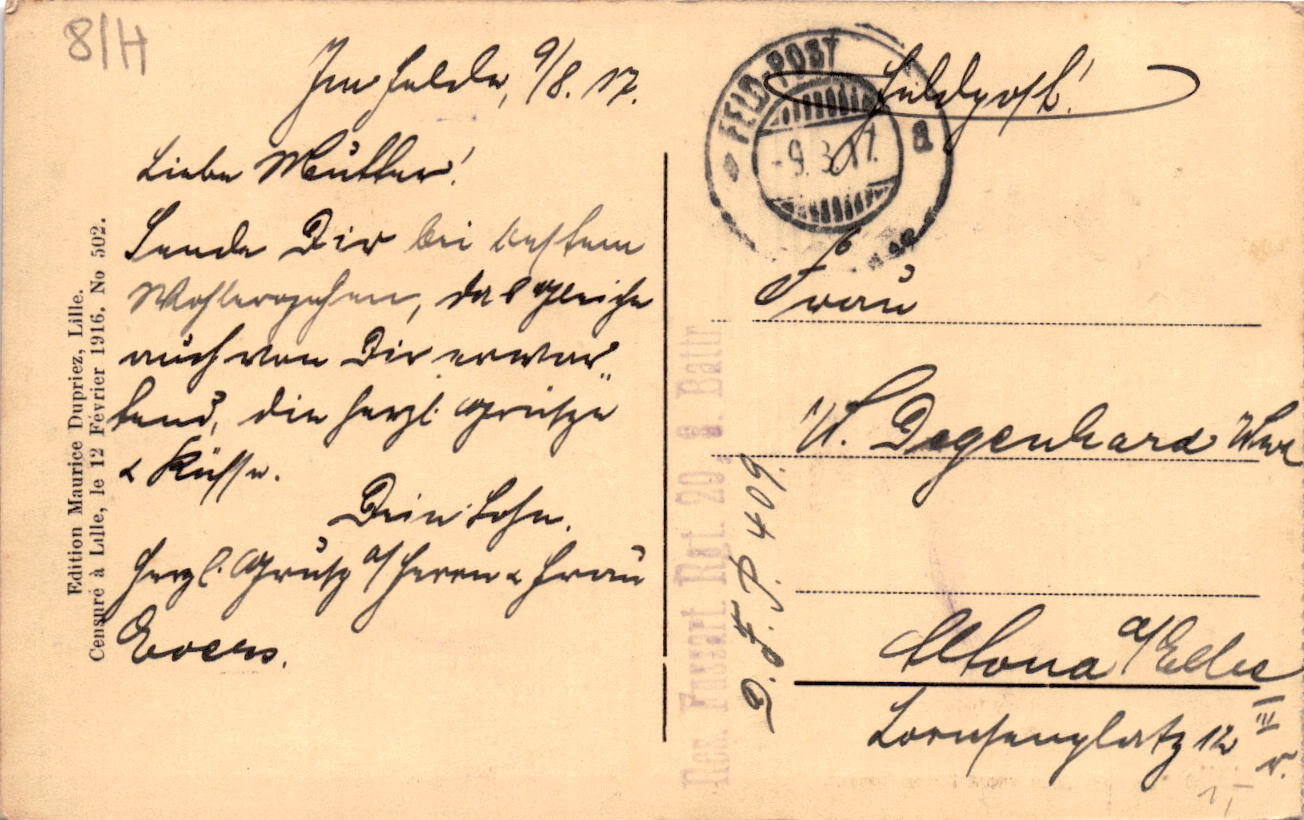 8/H
Im Felde, 9/8. 17.
Liebe Mutter!
Sende Dir bei bestem
Wohlergehen, das gleiche
auch von Dir erwar„
tend, die herzl. Grüße
& Küsse.
Dein Sohn.
Herzl. Gruß a/ Herrn & Frau
Evers.
Edition Maurice Dupriez, Lille.
Censuré à Lille, le 12 Février 1916. No 502.
Res. Fussart. Rgt. 20, 8. Battr
D. F. P. 409.
FELD-POST
-9.8.17.
a
Feldpost!
Frau
W. Degenhard Wwe
Altona a/Elbe
Lornsenplatz 12 III
r.